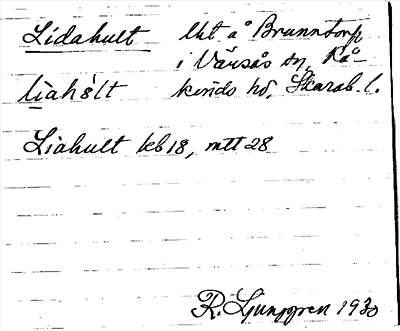 Lidahult lht. å Brunntorp
i Värsås sn, Kå-
liahə̀lt kinds hd, Skarab. l.
Liahult kb 18, mtt 28
R. Ljunggren 1930